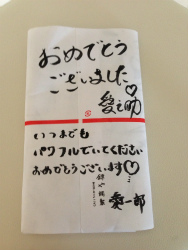 おめでとう
ございました♡
愛之助
いつまでも
パワフルでいてください
おめでとうございます♡…
愛一郎